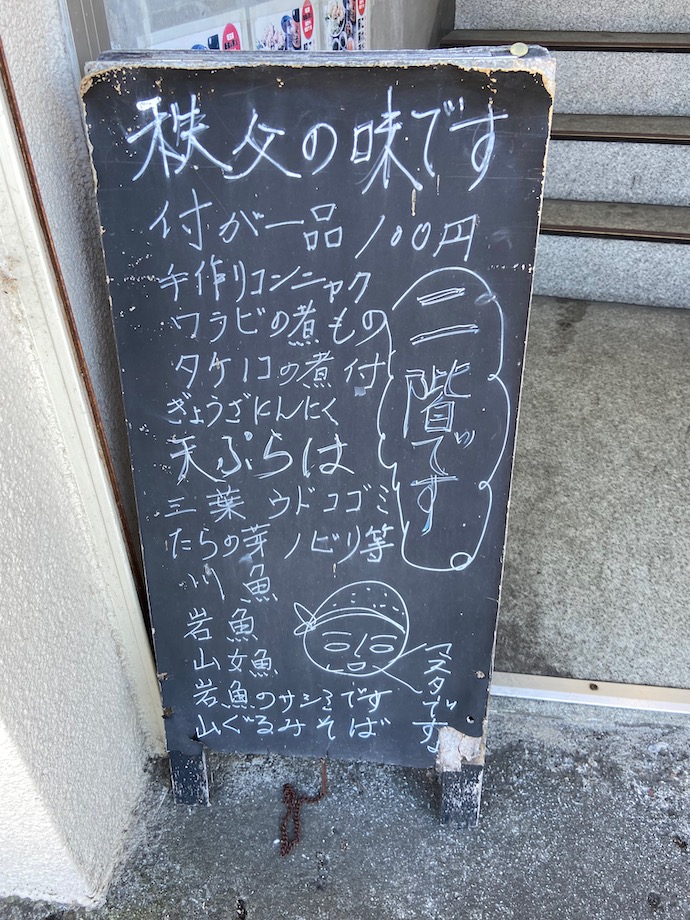 秩父の味です
付が一品100円
手作りコンニャク
ワラビの煮もの
タケノコの煮付
ぎょうざにんにく
天ぷらは
三葉ウドコゴミ
たらの芽ノビリ等
川魚
岩魚
山女魚
岩魚のサシミです
山ぐるみそば
二階です
マスタです